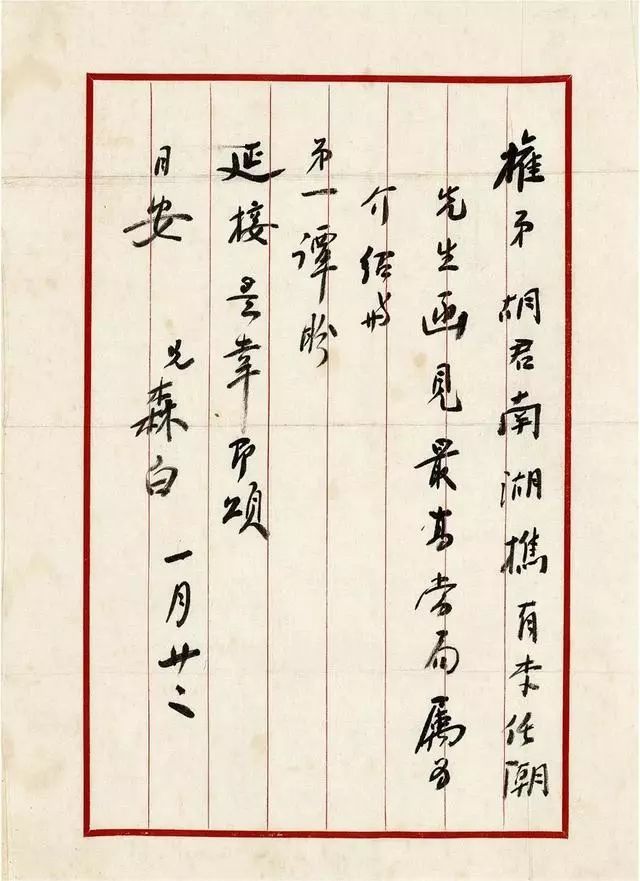 權弟胡君南湖携有李任潮
先生函見最高當局属为
介绍
弟一譚盼
延接是幸即頌
日安 兄森白 一月廿二